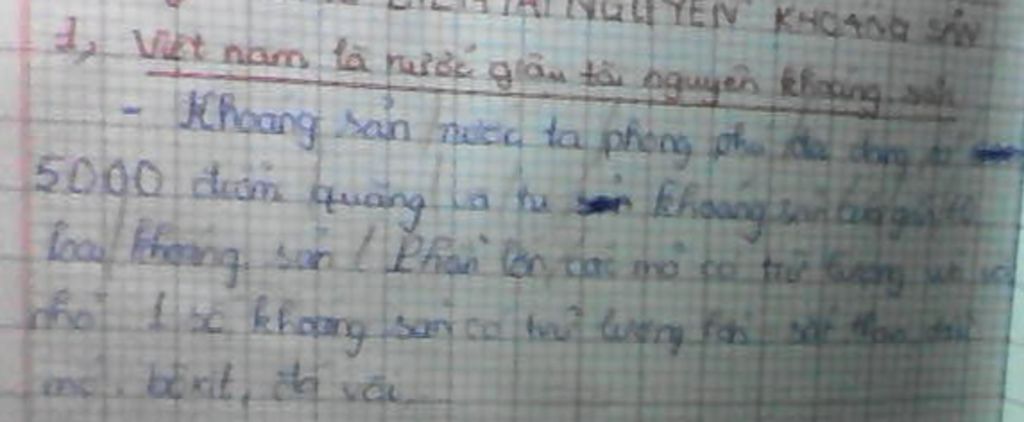 TÀI NGUYÊN KHOÁNG SẢN
1, Việt nam là nước giàu tài nguyên khoáng sản
- Khoáng sản nước ta phong phú đa dạng
5000 điểm quặng và tụ khoáng sản
loại khoáng sản / Phần lớn các mỏ có trữ lượng và
nhỏ 1 số khoáng sản có trữ lượng lớn sắt than dầu
mỏ, bôxit, đá vôi